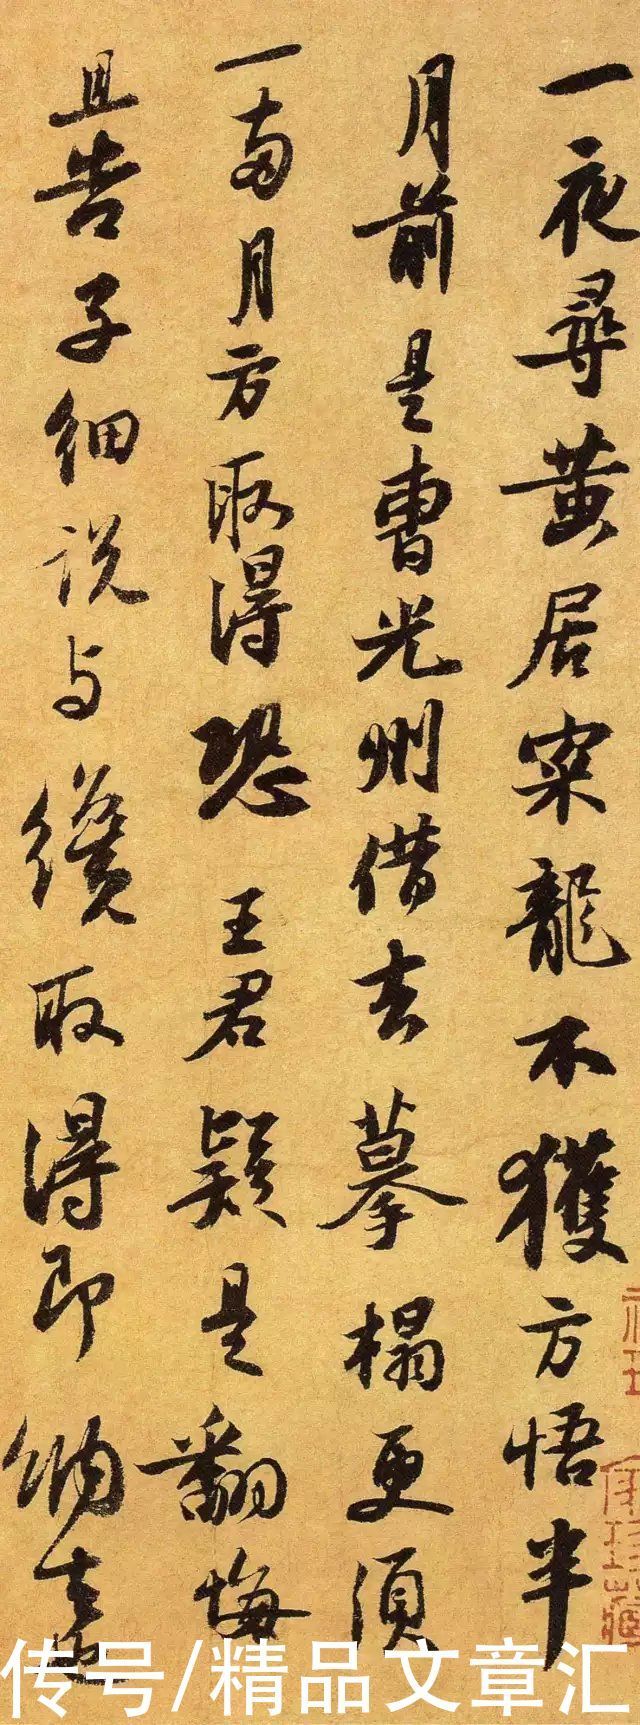 一夜尋黄居寀龍不獲方悟半
月前是曹光州借去摹榻更須
一兩月方取得恐王君疑是翻悔
且告子細説与纔取得即納去也
传号/精品文章汇